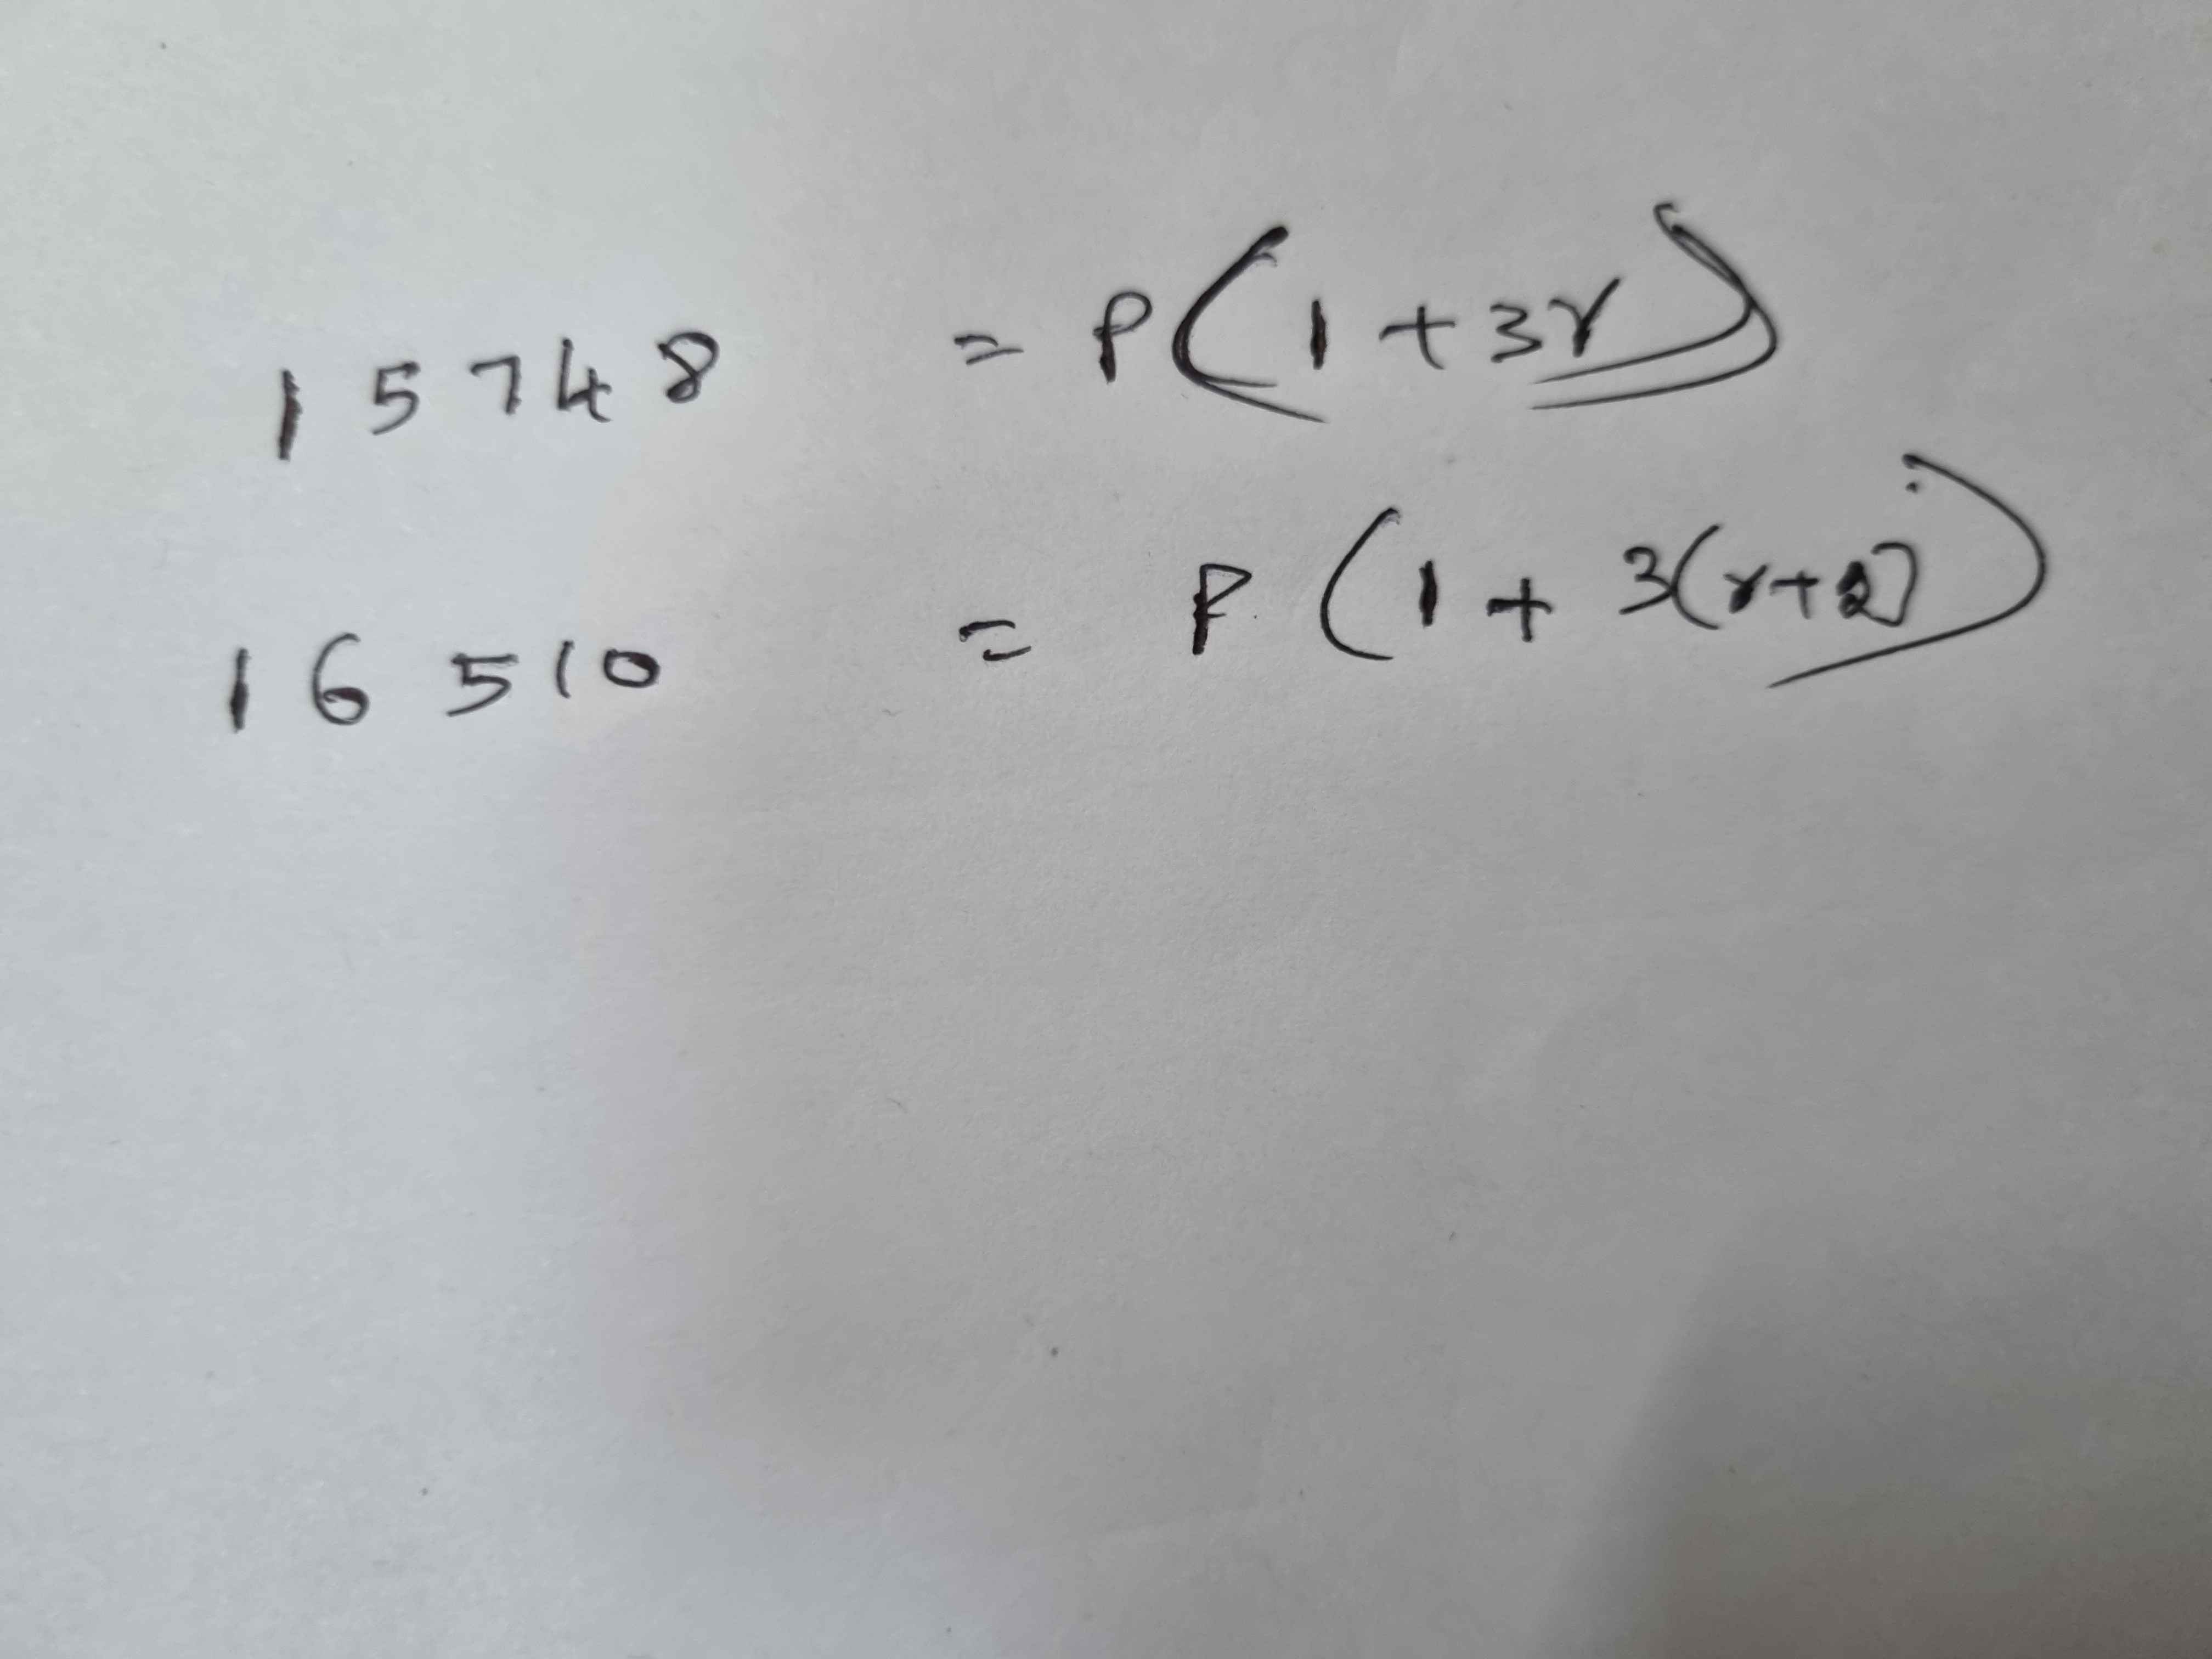 15748 = P(1+3r)
16510 = P(1+3(r+2))